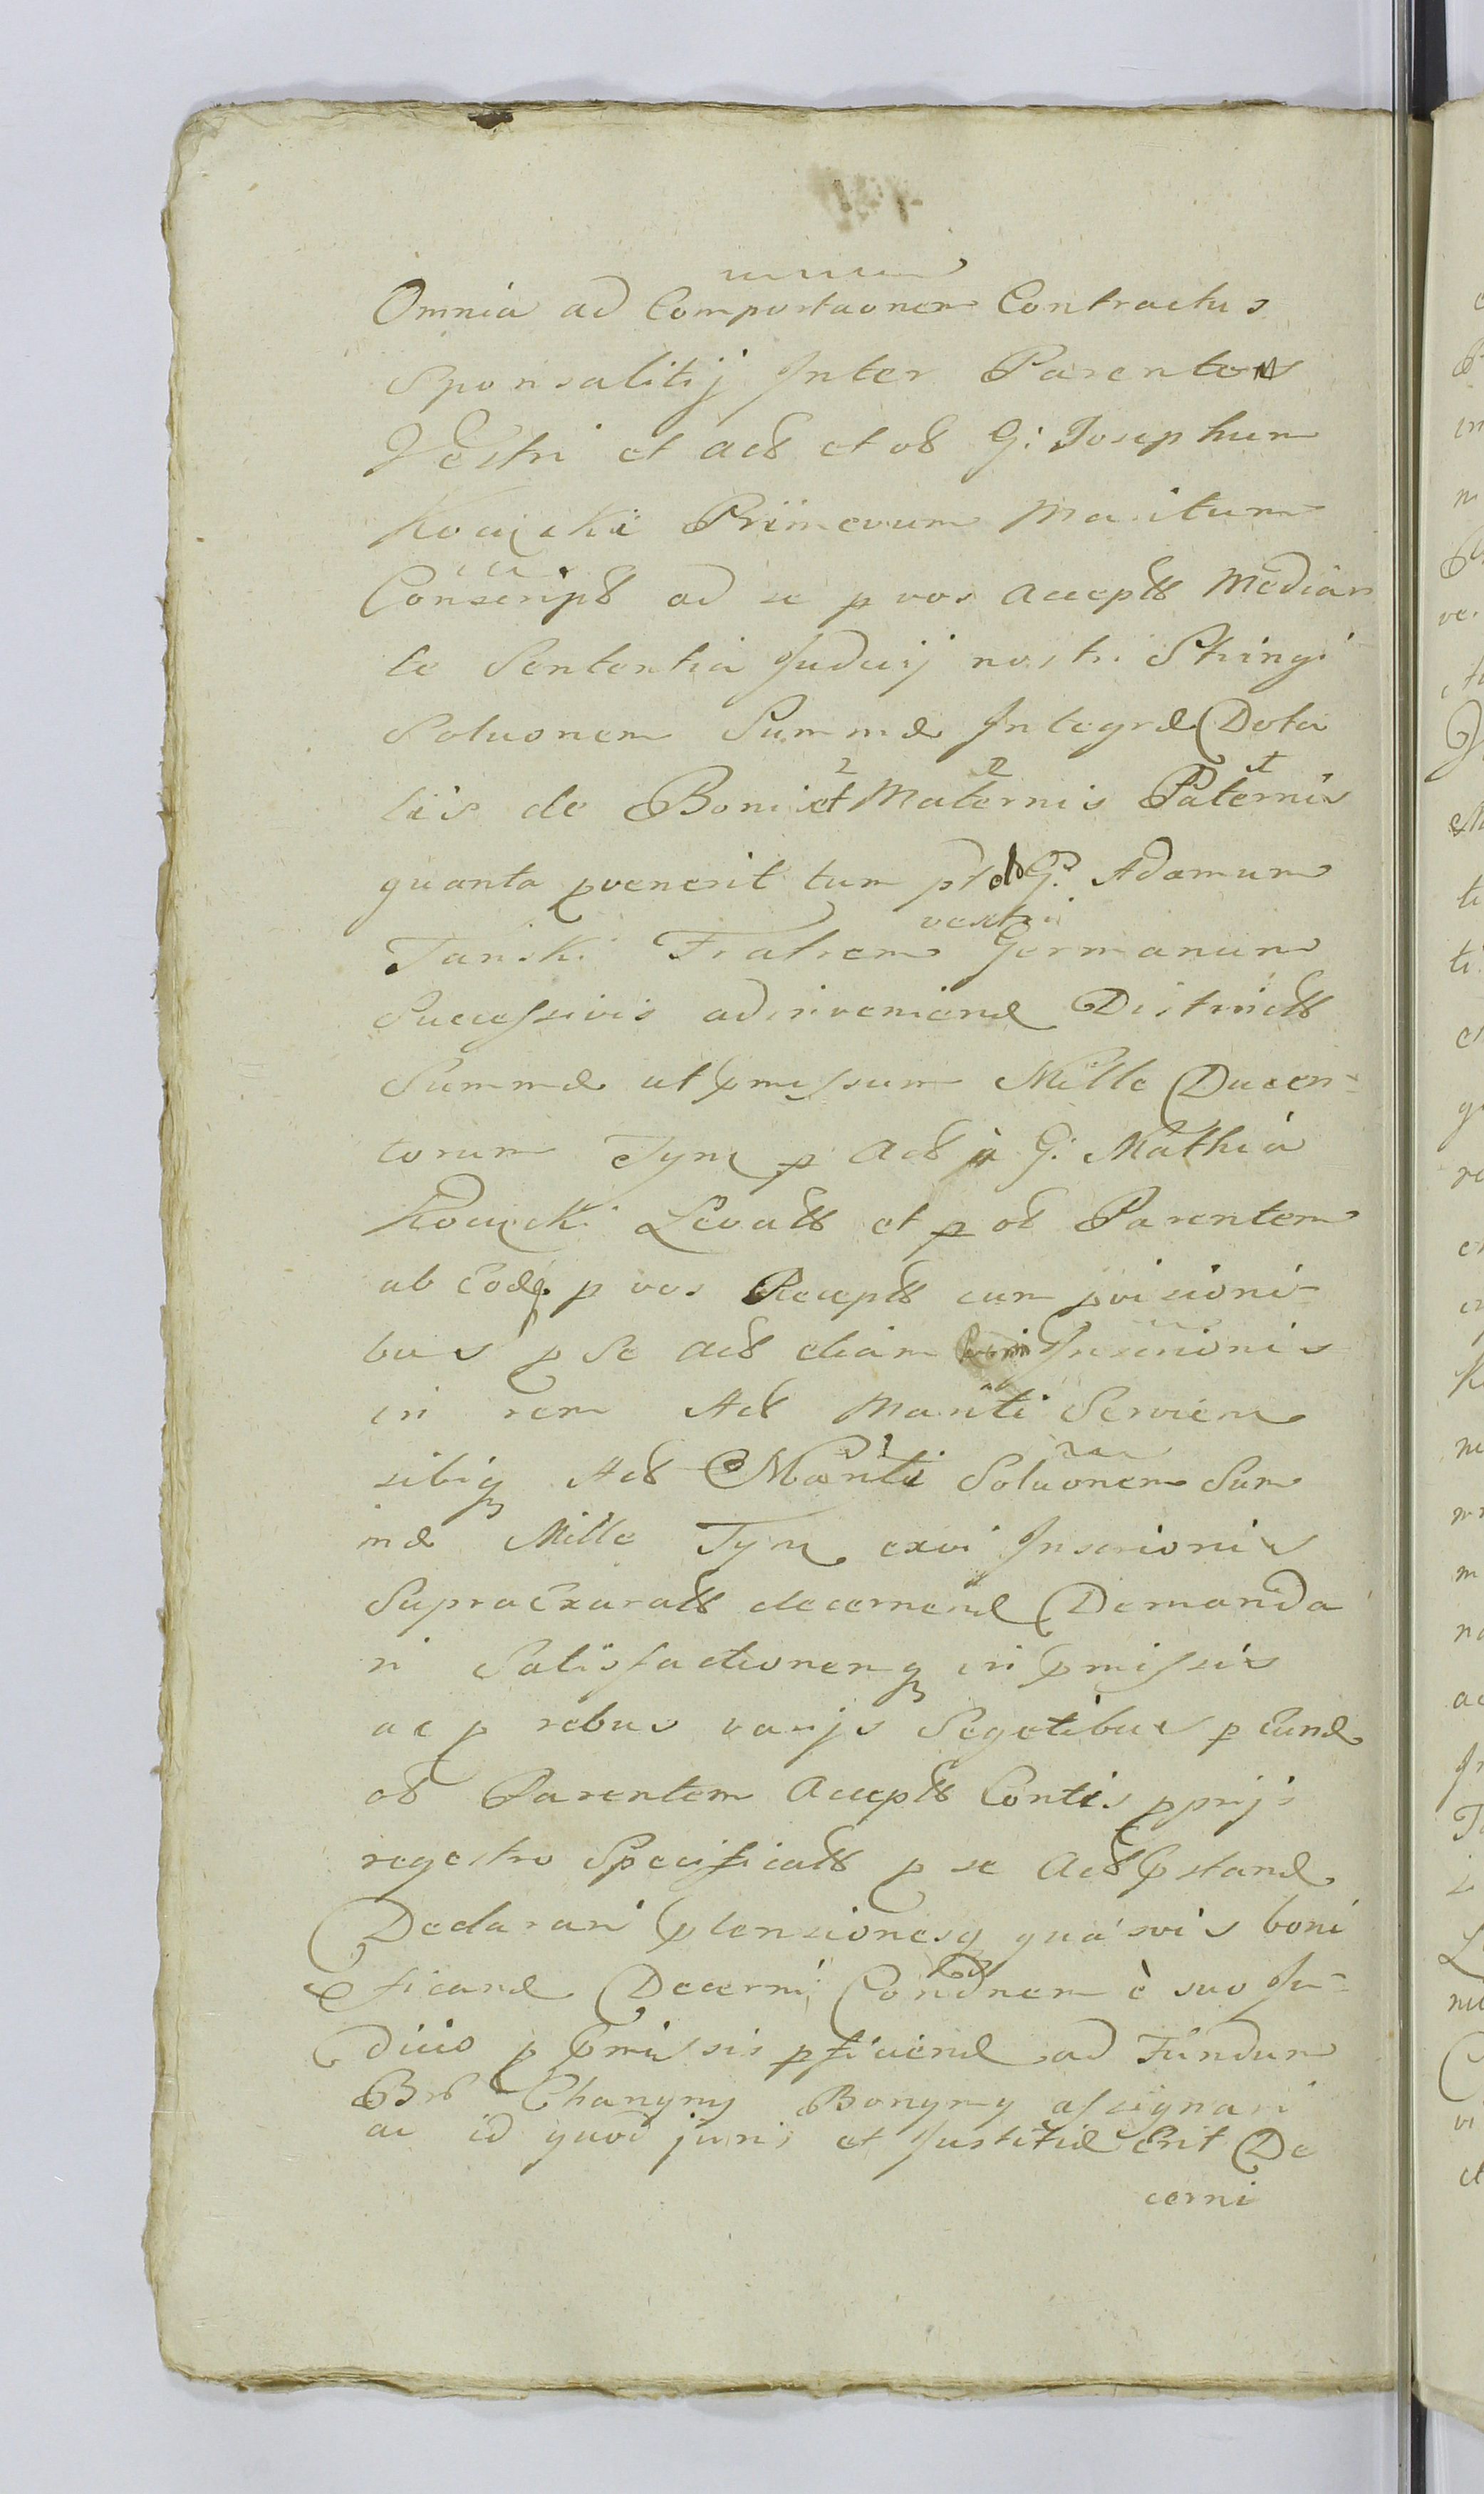 Omnia ad Comportaonem Contractus
Sponsalitij Inter Parentes
Vestri et act et ob G: Josephum
Kocięcki Priimevum Maritum
Conscript ad se p vos accept Median
te Sententia Judicij nostri Stringi
Soluonem Summæ Integræ Dota
liis de Bonis et Maternis Paternis
quanta pvenerit tum G. Adamum
vestri
Tanski Fratrem Germanum
Successivis adinveniend District
Summæ ut pmissum Mille Ducen-
torum Tymf p Act à G: Mathia
Kocięcki Levatt et p ob Parentem
ab Eod p vos Recept cum pvisioni
bus p se act etiam Inscrionis
in rem Act Mariti Servien
sibiq Act Mariti Soluonem Sum
mæ Mille Tymf exvi Inscrionis
Supra Exaratt decernend Demanda
ri Satisfactionemq in pmissis
ac p rebus varijs Segetibus p Eund
ob Parentem Accept Contis pprijs
regestro Specificatt p se Act pstand
Declarari ptensionesq quasvis boni
ficand Decerni Condnem è suo Ju-
dicio p pmissis pficiend ad Fundum
Bonymy assignari
ac id quod juris et Justitiæ Erit De
cerni